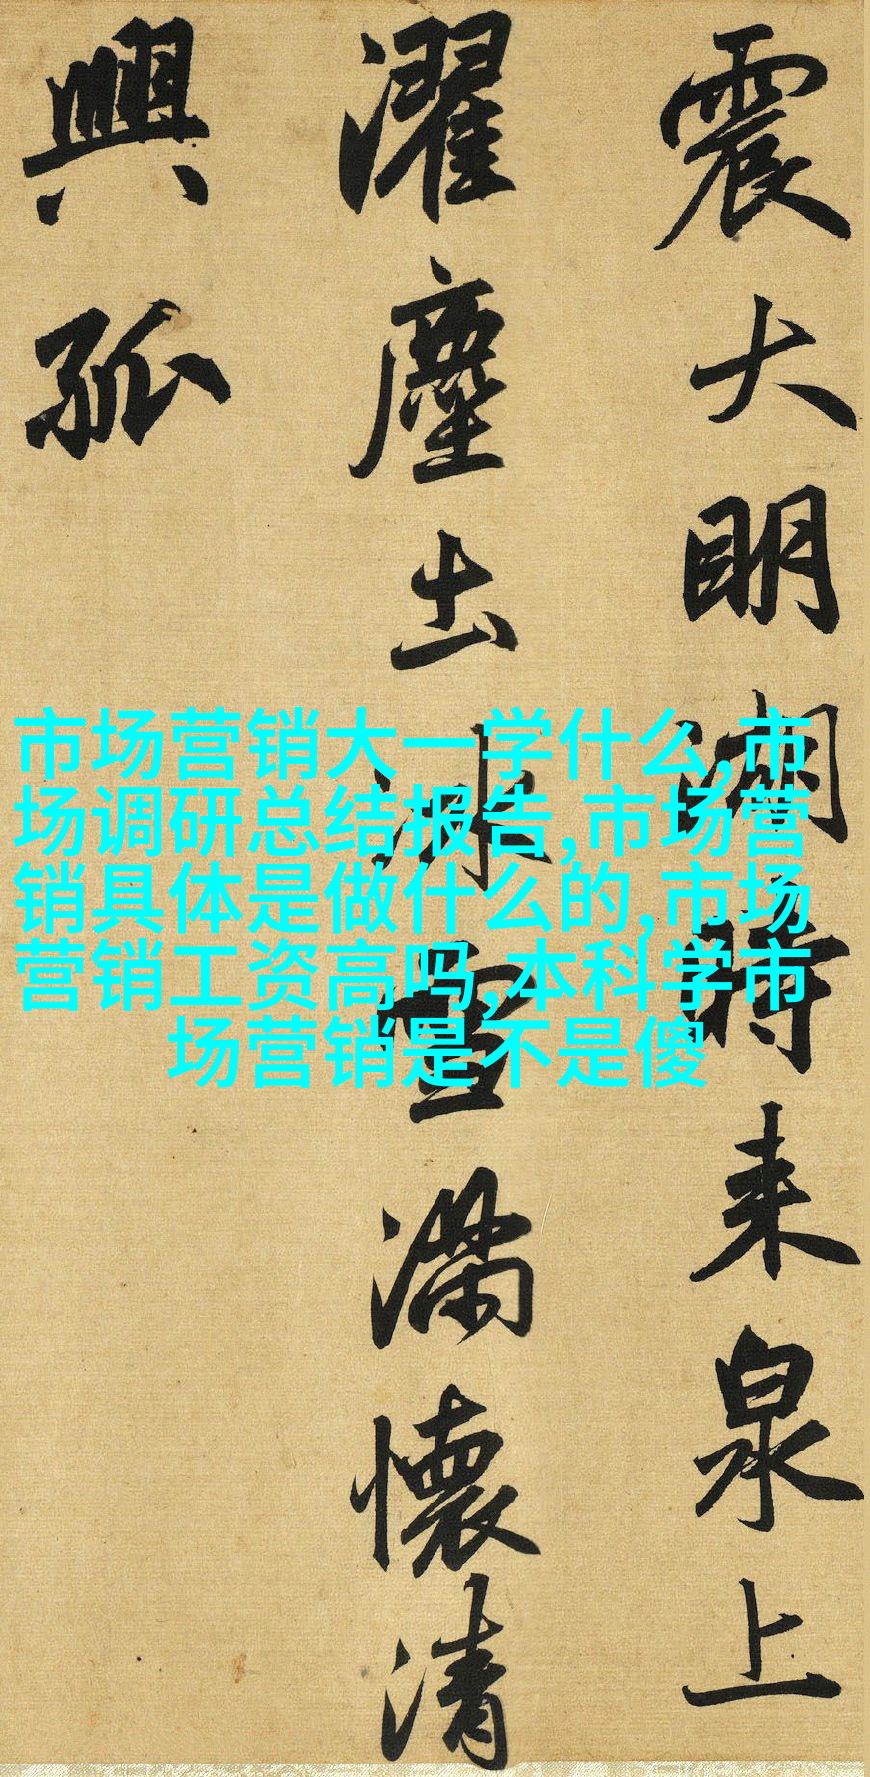 震大明湖時来泉上
濯塵出冰雪濡懷清
興孤
市场营销大一学什么,市
场调研总结报告,市场营
销具体是做什么的,市场
营销工资高吗,本科学市
场营销是不是傻